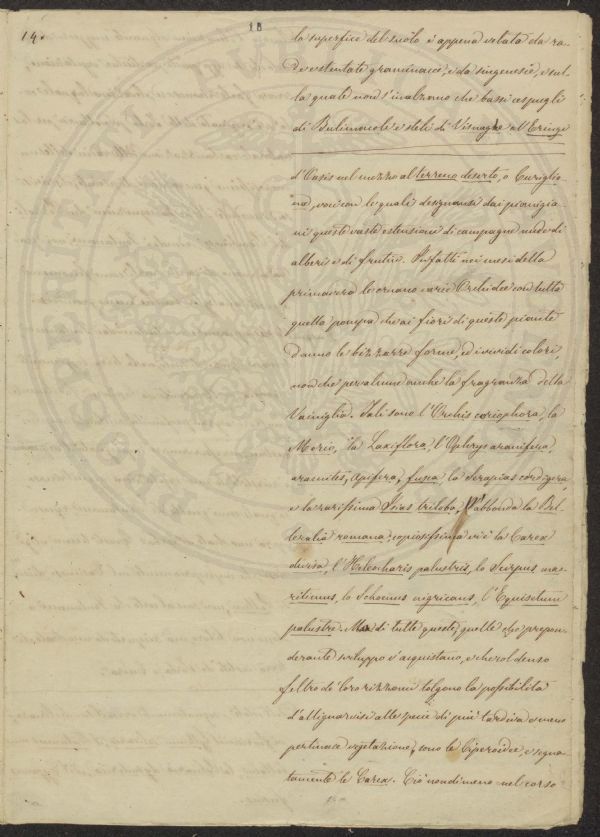 14.
18
la superfice del suolo è appena velata da ra-
di e stentate graminacce, e da singenesie, e sul-
la quale non s'inalzano che bassi cespugli
di Bulimacole e steli di Visnaghe all'Eringi
d'Oasis nel mezzo al terreno deserto, o Curiglio-
no, voci con le quali designansi dai pianigia-
ni queste vaste estensioni di campagne nude di
alberi e di frutici. Infatti nei mesi della
primavera le ornano varie Orchidee con tutta
quella pompa che ai fiori di queste piante
danno le bizzarre forme, ed i vividi colori,
non che per alcune anche la fragranza della
Vainiglia. Tali sono l'Orchis coriophora, la
Morio, la Laxiflora, l'Ophrys aranifera,
aracnites, apifera, fusca, la Serapias cordigera
e la rarissima Isias triloba; v'abbonda la Bel-
levalia romana; copiosissima vi è la Carex
divisa, l'Heleocharis palustris, lo Scirpus ma-
ritimus, lo Schoenus nigricans, l'Equisetum
palustre. Ma di tutte queste, quelle che prepon-
derante sviluppo v'acquistano, e che col denso
feltro di loro rizzomi tolgono la possibilità
d'attignarvisi alle specie di più tardiva e meno
pertinace vegetazione, sono le Ciperoidee, e segna-
tamente le Carex. Ciò nondimeno nel corso